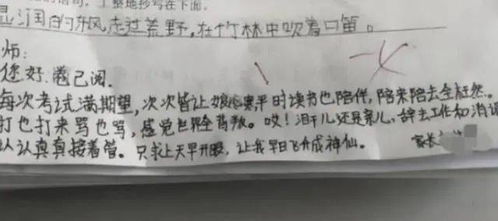 的语句，工整地抄写在下面。
湿润的东风，走过荒野，在竹林中吹着口笛。
师：
您好。卷已阅。
每次考试满期望，次次皆让娘心寒。平时读书也陪伴，陪来陪去全枉然。
打也打来骂也骂，感觉世界全背叛。哎！泪干儿还是亲儿，辞去工作和消
从认真真接着管。只求上天早开眼，让我早日飞升成神仙。
家长